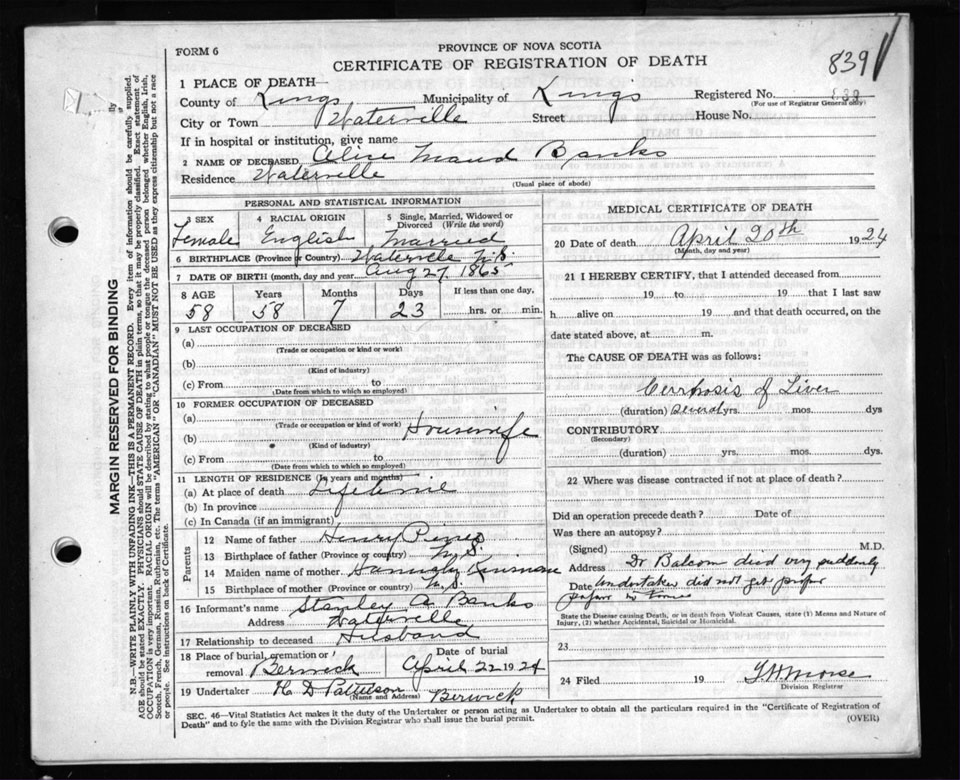 FORM 6
PROVINCE OF NOVA SCOTIA
CERTIFICATE OF REGISTRATION OF DEATH
839
1 PLACE OF DEATH
County of Kings Municipality of Kings Registered No.
(For use of Registrar General only)
City or Town Waterville Street House No.
If in hospital or institution, give name
2 NAME OF DECEASED, Alice Maud Banks
Residence Waterville
(Usual place of abode)
PERSONAL AND STATISTICAL INFORMATION
3 SEX 4 RACIAL ORIGIN 5 Single, Married, Widowed or Divorced (Write the word)
Female English Married
6 BIRTHPLACE (Province or Country) Waterville N.S.
7 DATE OF BIRTH (month, day and year) Aug 27, 1865
8 AGE Years Months Days If less than one day,
58 58 7 23 hrs. or min.
9 LAST OCCUPATION OF DECEASED
(a)
(Trade or occupation or kind or work)
(b)
(Kind of industry)
(c) From to
(Date from which to which so employed)
10 FORMER OCCUPATION OF DECEASED
(a)
(Trade or occupation or kind of work)
(b) Housewife
(Kind of industry)
(c) From to
(Date from which to which so employed)
11 LENGTH OF RESIDENCE (In years and months)
(a) At place of death Lifetime
(b) In province
(c) In Canada (if an immigrant)
Parents
12 Name of father Henry
13 Birthplace of father (Province or country) N.S.
14 Maiden name of mother Kinsman
15 Birthplace of mother (Province or country) N.S.
16 Informant's name Stanley A Banks
Address Waterville
17 Relationship to deceased Husband
18 Place of burial, cremation or removal Berwick Date of burial April 22 1924
19 Undertaker H D Patterson Berwick
(Name and Address)
MEDICAL CERTIFICATE OF DEATH
20 Date of death April 20th 1924
(Month, day and year)
21 I HEREBY CERTIFY, that I attended deceased from
19 to 19 that I last saw
h alive on 19 and that death occurred, on the
date stated above, at m.
The CAUSE OF DEATH was as follows:
Cerrhosis of Liver
(duration) Several yrs. mos. dys
CONTRIBUTORY
(Secondary)
(duration) yrs. mos. dys.
22 Where was disease contracted if not at place of death?
Did an operation precede death? Date of
Was there an autopsy?
(Signed) M.D.
Address Dr Balcom died very suddenly
Date Undertaker did not get proper
papers in time
State the Disease causing Death, or in death from Violent Causes, state (1) Means and Nature of Injury, (2) whether Accidental, Suicidal or Homicidal.
23
24 Filed 19 Morse
Division Registrar
SEC. 46—Vital Statistics Act makes it the duty of the Undertaker or person acting as Undertaker to obtain all the particulars required in the "Certificate of Registration of
Death" and to fyle the same with the Division Registrar who shall issue the burial permit.
(OVER)
MARGIN RESERVED FOR BINDING
N.B.—WRITE PLAINLY WITH UNFADING INK—THIS IS A PERMANENT RECORD. Every item of information should be carefully supplied.
AGE should be stated EXACTLY. PHYSICIANS should STATE CAUSE OF DEATH in plain terms, so that it may be properly classified. Exact statement of
OCCUPATION is very important. RACIAL ORIGIN will be described by stating to what people or tongue the deceased person belonged whether English, Irish,
Scotch, French, German, Russian, Ruthenian, etc. The terms "AMERICAN" OR "CANADIAN" MUST NOT BE USED as they express citizenship but not a race
or people. See instructions on back of Certificate.